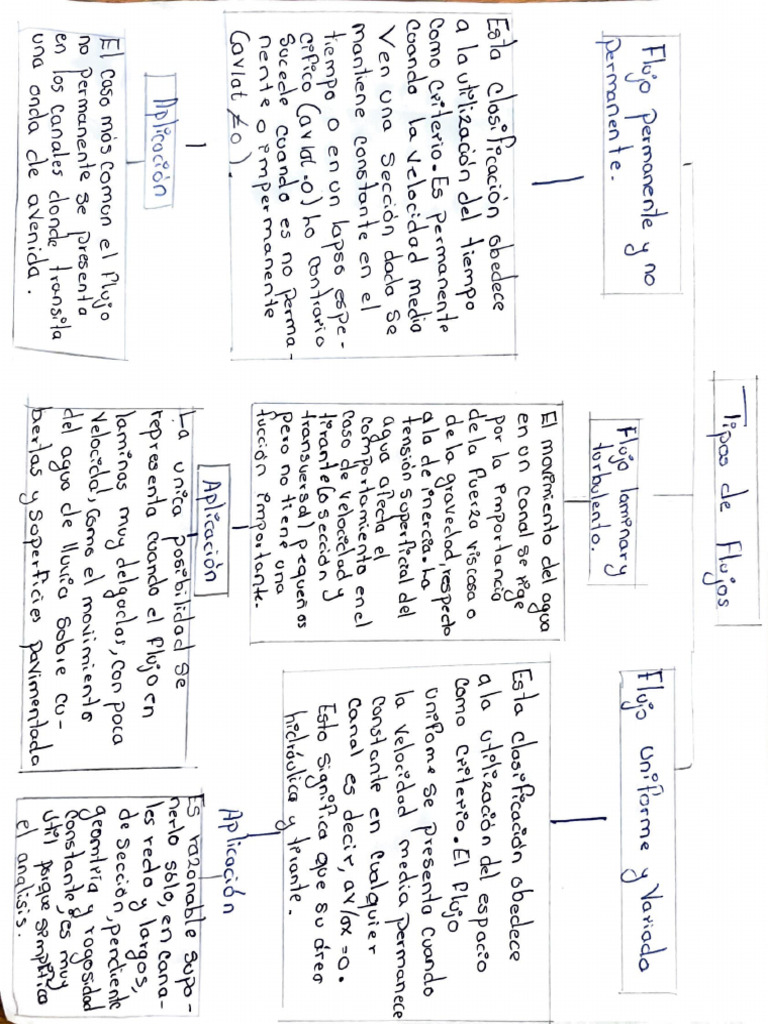 Tipos de Flujos
Flujo permanente y no
permanente.
Esta clasificación obedece
a la utilización del tiempo
como criterio. Es permanente
cuando la velocidad media
V en una sección dada se
mantiene constante en el
tiempo o en un lapso espe-
cifico (av/at=0) ho contrario
sucede cuando es no perma-
nente o impermanente
(av/at ≠ 0).
Aplicación
El caso más comun el flujo
no permanente se presenta
en los canales donde transita
una onda de avenida.
Flujo laminar y
turbulento.
El movimiento del agua
en un canal se rige
por la importancia
de la fuerza viscosa o
de la gravedad, respecto
a la de inercia. ha
tensión superficial del
agua afecta el
comportamiento en el
caso de velocidad y
tirante (o sección
transversal) pequeños
pero no tiene una
fucción importante.
Aplicación
La unica posibilidad se
representa cuando el flujo en
laminas muy delgadas, con poca
velocidad, como el movimiento
del agua de lluvia sobre cu-
biertas y superficies pavimentada
Flujo uniforme y Variado
Esta clasificación obedece
a la utilización del espacio
como criterio. El flujo
uniforme se presenta cuando
la velocidad media permanece
constante en cualquier
canal es decir, av/ax =0.
Esto significa que su área
hidráulica y tirante.
Aplicación
Es razonable supo-
nerlo sólo, en cana-
les recto y largos,
de sección, pendiente
geomtria y rogosidad
constante, es muy
util porque simplifica
el analisis.